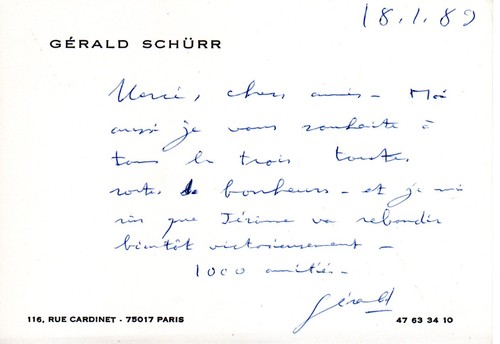 18.1.89
GÉRALD SCHÜRR
Merci, chers amis - Moi
aussi je vous souhaite à
tous les trois toutes
sortes de bonheurs - et je
que Jérôme va rebondir
bientôt victorieusement -
1000 amitiés -
Gérald
116, RUE CARDINET - 75017 PARIS
47 63 34 10